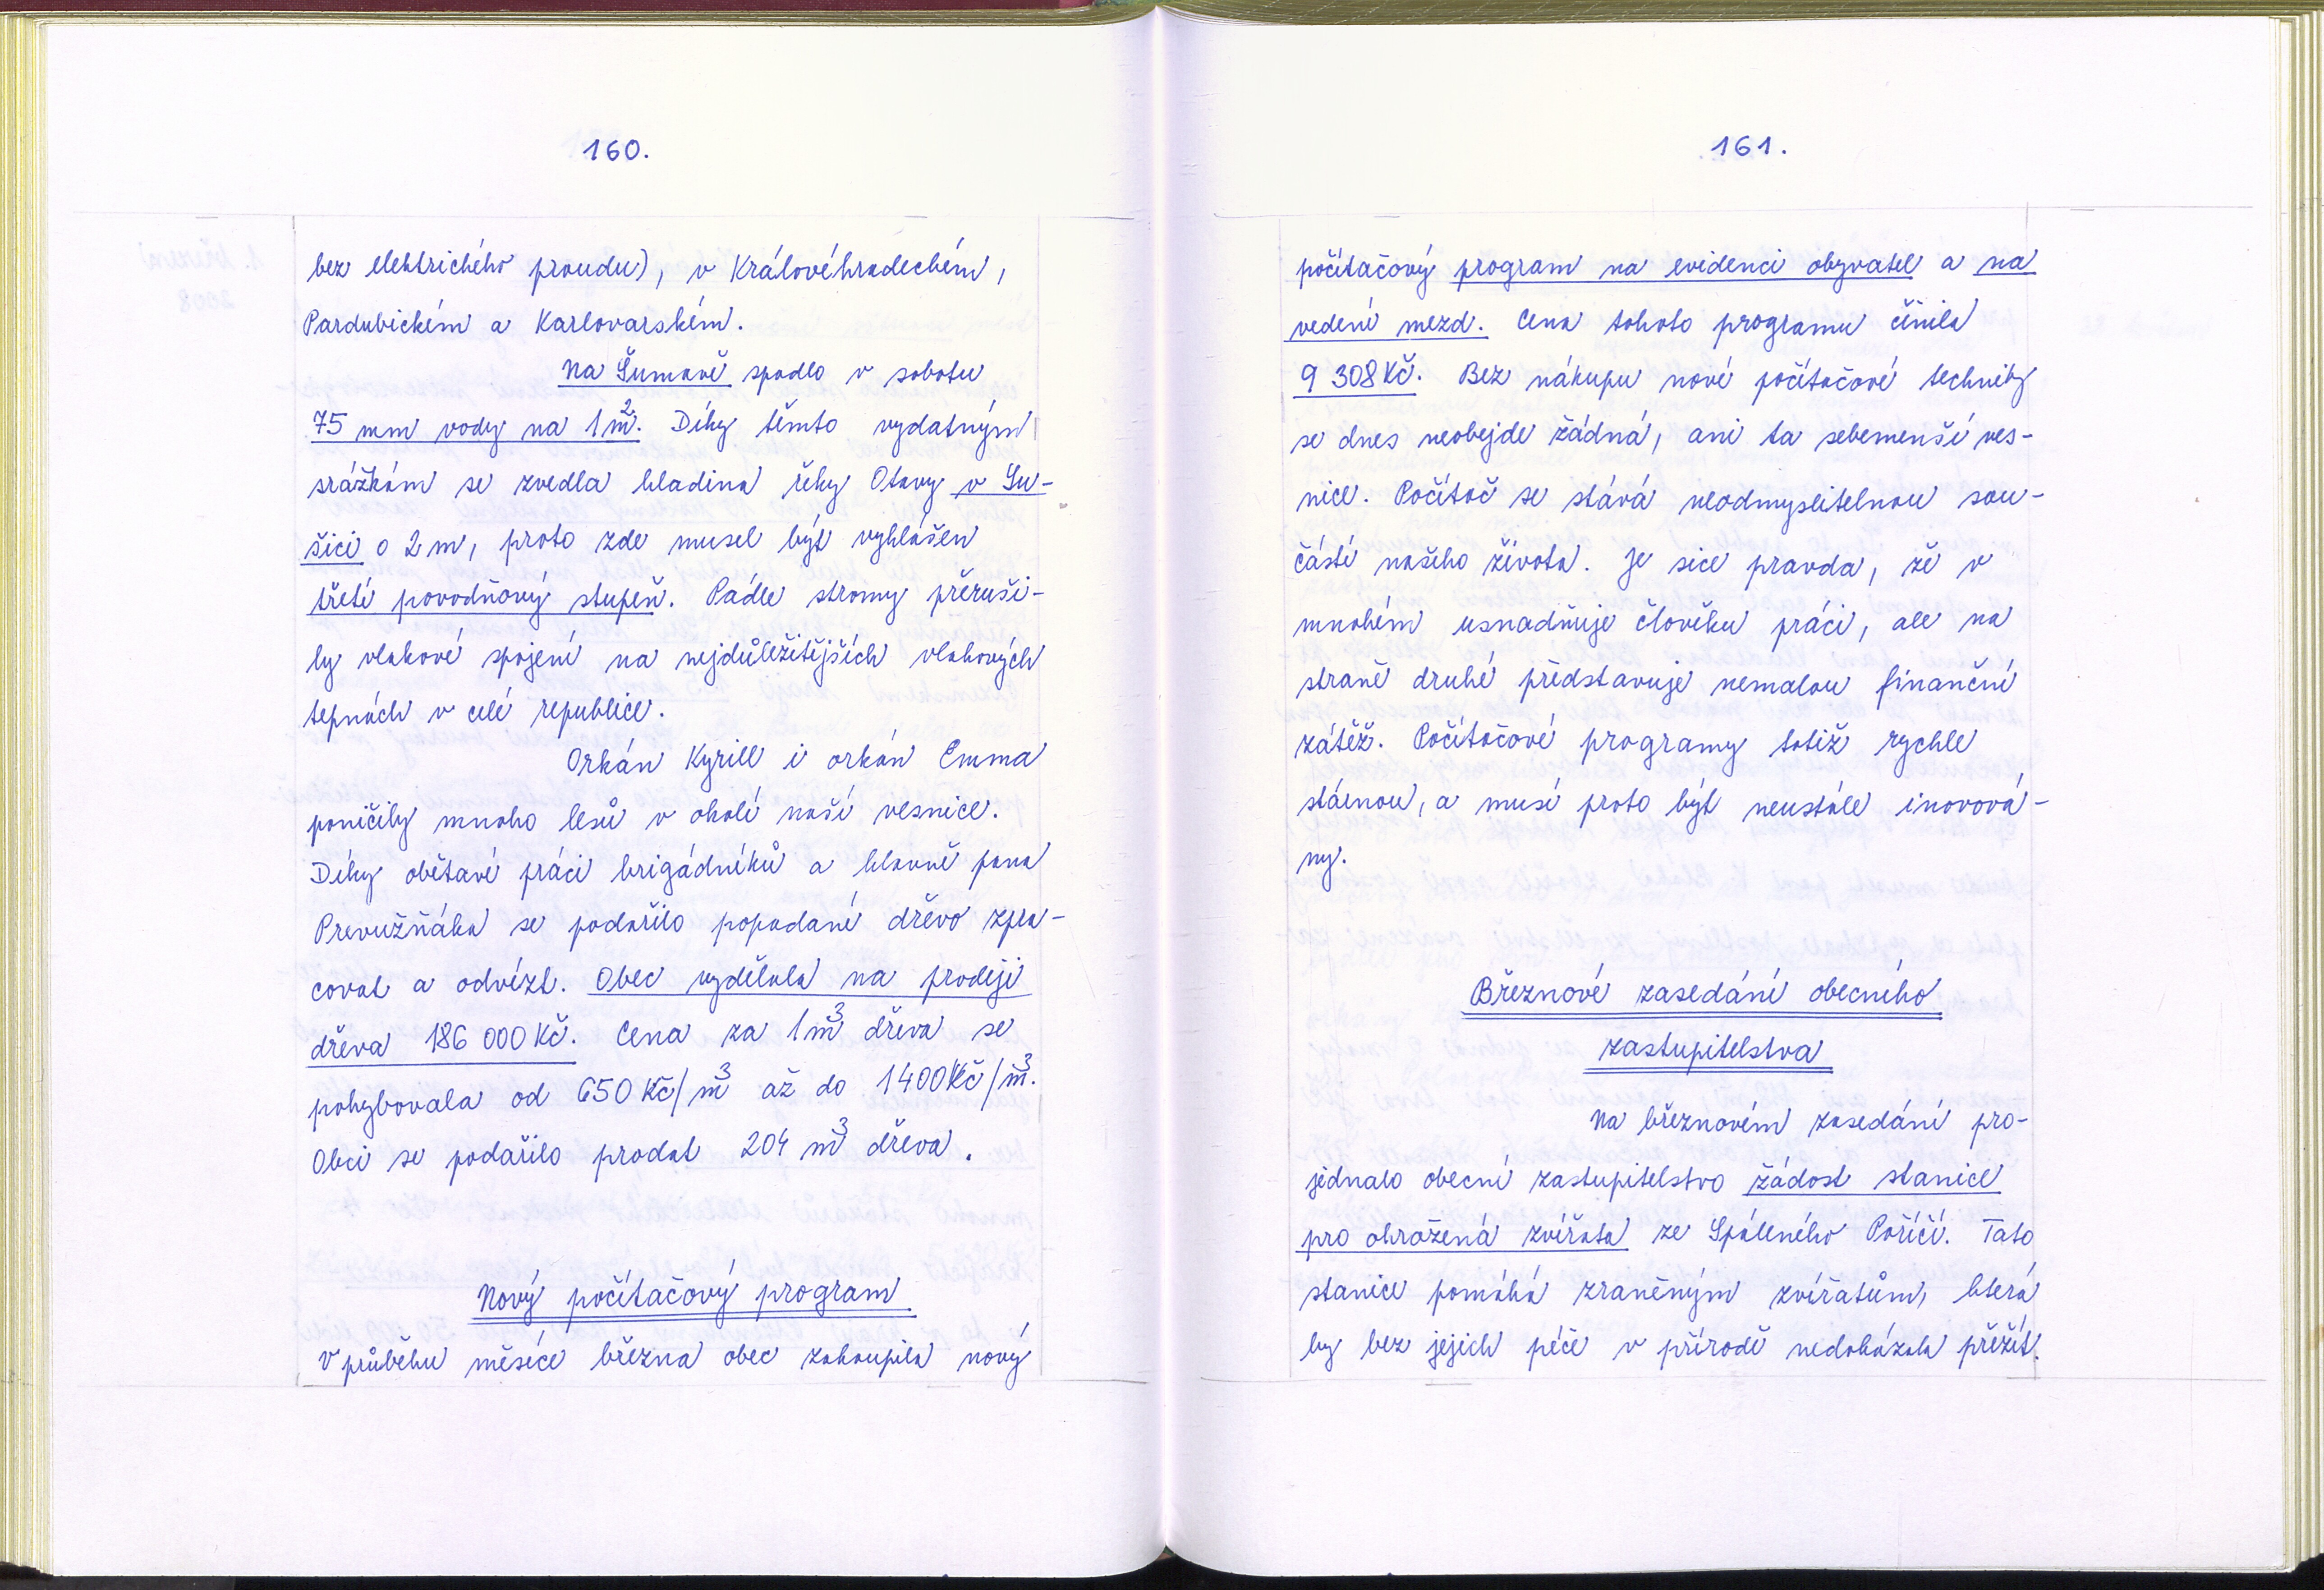 160.
bez elektrického proudu), v Královéhradeckém,
Pardubickém a Karlovarském.
Na Šumavě spadlo v sobotu
75 mm vody na 1m². Díky těmto vydatným
srážkám se zvedla hladina řeky Otavy v Su-
šici o 2 m, proto zde musel být vyhlášen
třetí povodňový stupeň. Padlé stromy přeruši-
ly vlakové spojení na nejdůležitějších vlakových
tepnách v celé republice.
Orkán Kyrill i orkán Emma
poničily mnoho lesů v okolí naší vesnice.
Díky obětavé práci brigádníků a hlavně pana
Prevužňáka se podařilo popadané dřevo zpra-
covat a odvézt. Obec vydělala na prodeji
dřeva 186 000 Kč. Cena za 1m³ dřeva se
pohybovala od 650 Kč/m³ až do 1400 Kč/m³.
Obci se podařilo prodat 204 m³ dřeva.
Nový počítačový program
V průběhu měsíce března obec zakoupila nový
161.
počítačový program na evidenci obyvatel a na
vedení mezd. Cena tohoto programu činila
9 308 Kč. Bez nákupu nové počítačové techniky
se dnes neobejde žádná, ani ta sebemenší ves-
nice. Počítač se stává neodmyslitelnou sou-
částí našeho života. Je sice pravda, že v
mnohém usnadňuje člověku práci, ale na
straně druhé představuje nemalou finanční
zátěž. Počítačové programy totiž rychle
stárnou, a musí proto být neustále inovová-
ny.
Březnové zasedání obecního
zastupitelstva
Na březnovém zasedání pro-
jednalo obecní zastupitelstvo žádost stanice
pro ohrožená zvířata ze Spáleného Poříčí. Tato
stanice pomáhá zraněným zvířatům, která
by bez jejich péče v přírodě nedokázala přežít.